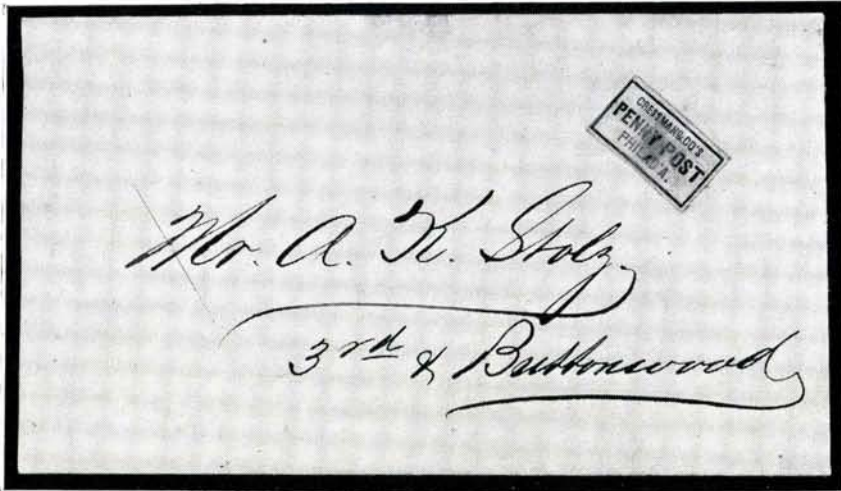 CRESSMAN & CO'S
PENNY POST
PHILAD'A.
Mr. A. K. Stolz
3rd & Buttonwood